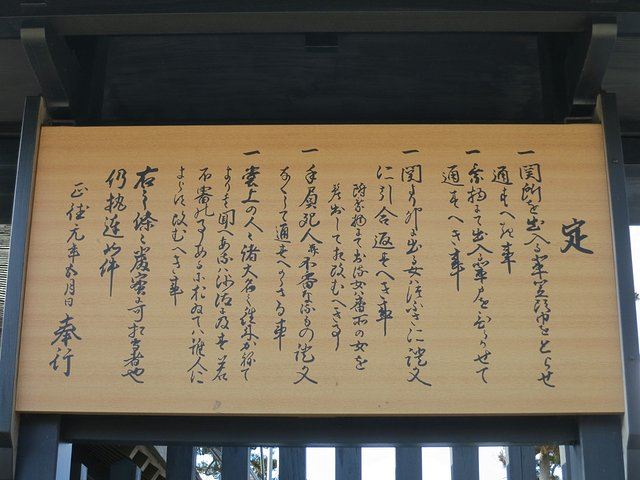 定
一 関所を出入る輩笠頭巾をとらせ
通すへき事
一 乗物にて出入る輩戸をひらかせて
通すへき事
一 関より外に出る女はつふさに証文
に引合通すへき事
附乗物にて出る女は番所の女を
差出して相改むへき事
一 手負死人并不審なるもの証文
なくして通すへからさる事
一 堂上の人々諸大名の往来かねて
より其聞へあるにおゐては沙汰に及ハす若
不審の事あるにおゐては誰人に
よらす改むへき事
右之條々厳密可相守者也
仍執達如件
正徳元年五月日 奉行